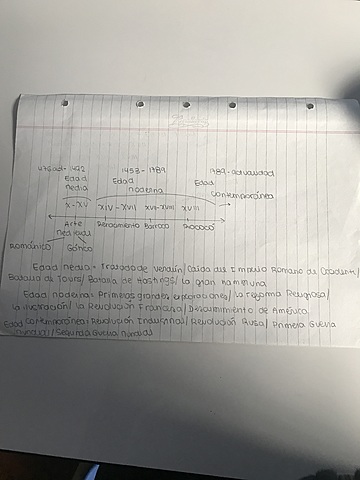 1453 - 1789
1789 - actualidad
Edad
Media
Edad
Moderna
Edad
Contemporánea
X - XV
XIV - XVII
XVII - XVIII
XVIII
Arte
Medieval
Renacimiento
Barroco
Rococó
Románico
Gótico
Edad Media = Tratado de Verdún / Caída del Imperio Romano de Occidente /
Batalla de Tours / Batalla de Hastings / La gran hambruna
Edad Moderna = Primeras grandes exploraciones / La reforma Religiosa /
La ilustración / La Revolución Francesa / Descubrimiento de América
Edad Contemporánea: Revolución Industrial / Revolución Rusa / Primera Guerra
Mundial / Segunda Guerra Mundial